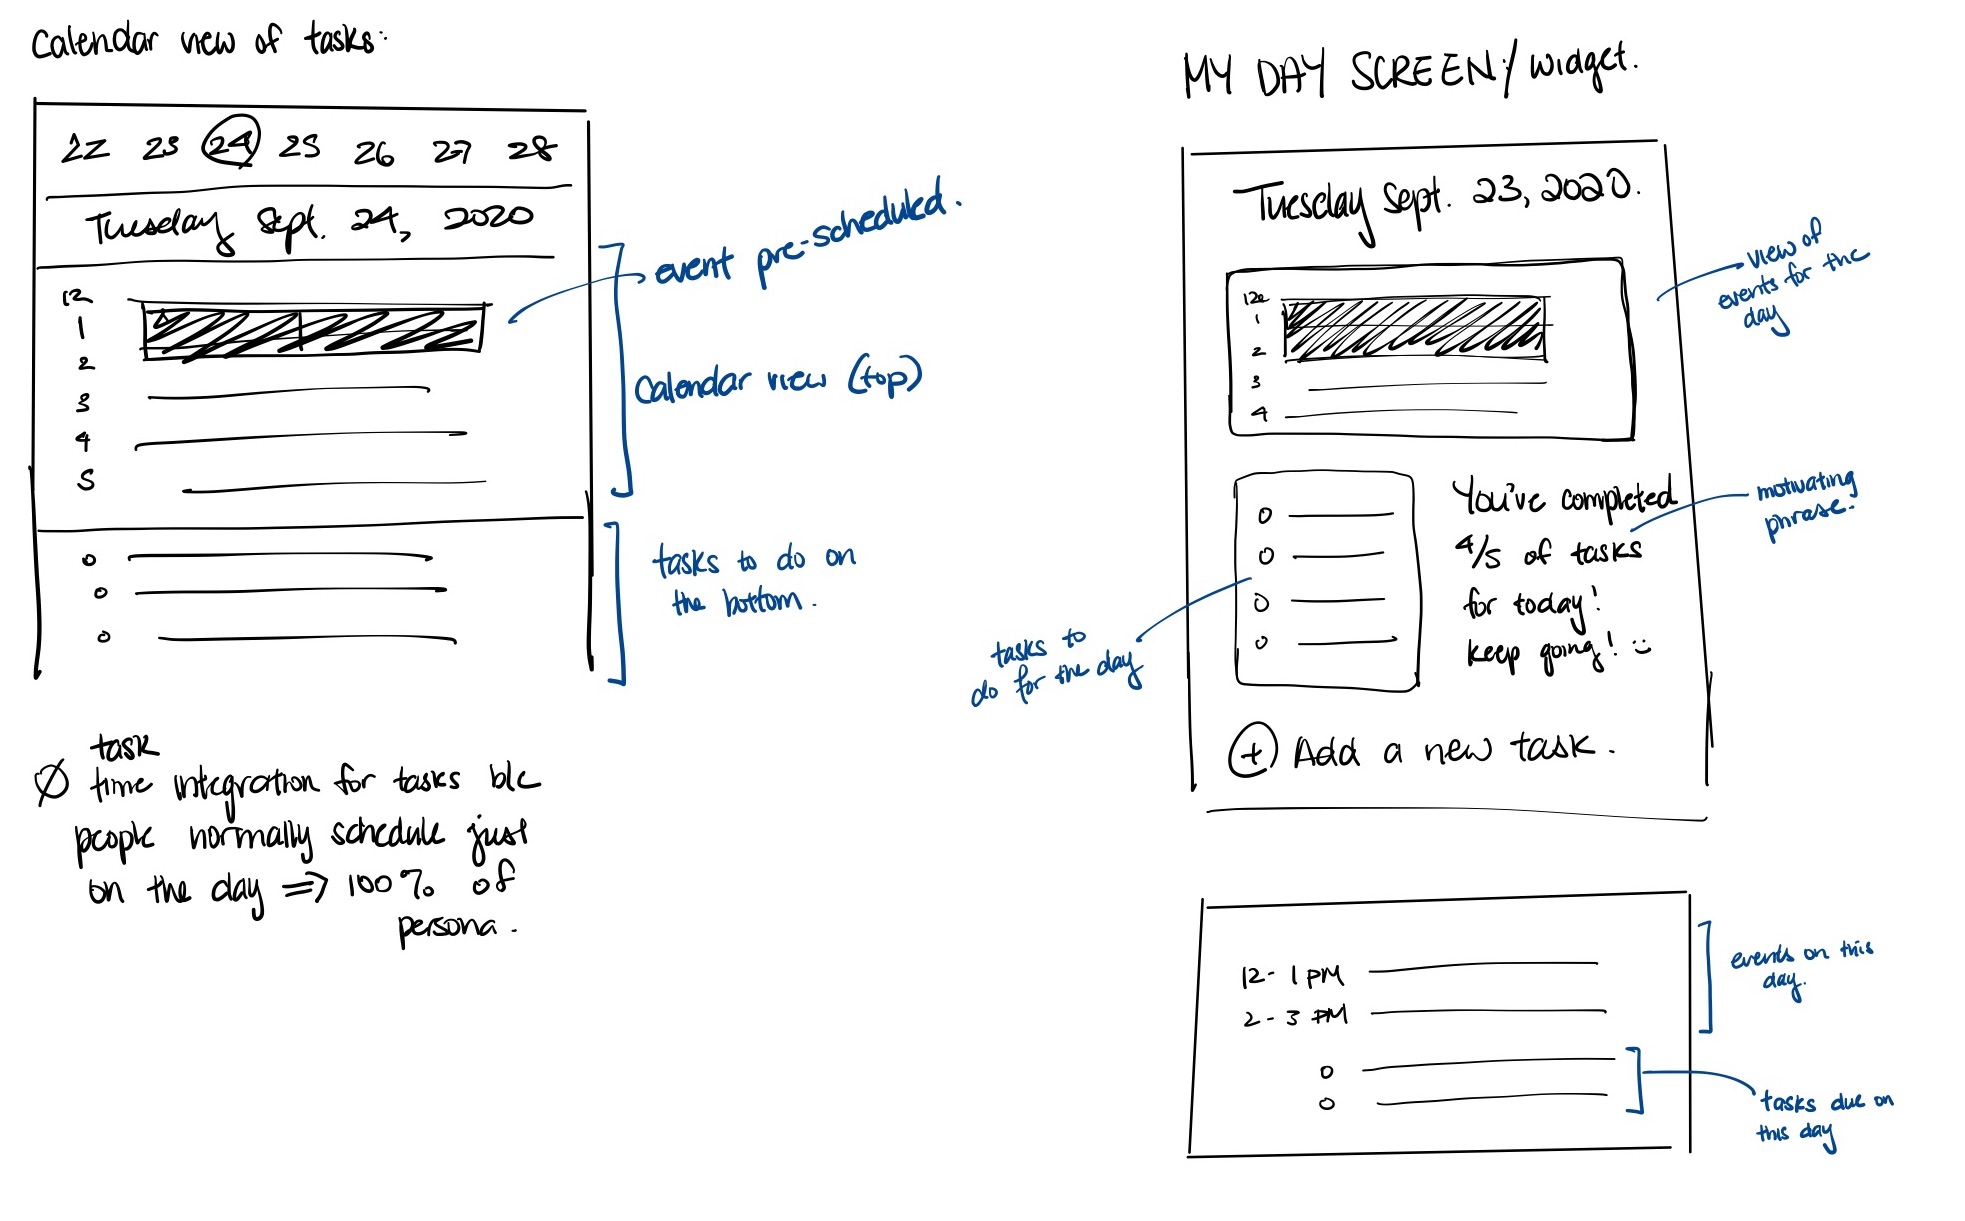 Calendar view of tasks:
22 23 24 25 26 27 28
Tuesday Sept. 24, 2020
12
1
2
3
4
5
event pre-scheduled.
Calendar view (top)
tasks to do on
the bottom.
task
time integration for tasks b/c
people normally schedule just
on the day => 100% of
persona.
MY DAY SCREEN/widget.
Tuesday Sept. 23, 2020.
1
2
3
4
view of
events for the
day
You've completed
4/5 of tasks
for today!
keep going! :)
motivating
phrase.
tasks to
do for the day
+ Add a new task.
12-1 PM
2-3 PM
events on this
day.
tasks due on
this day